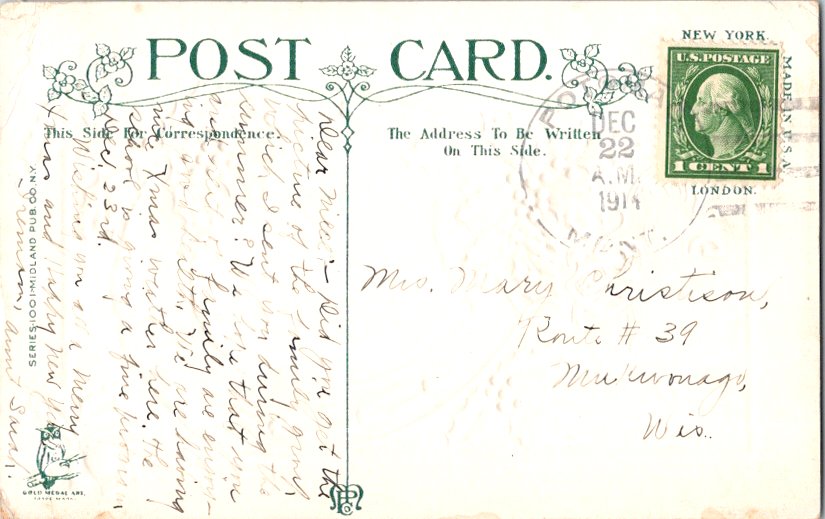 POST CARD.
This Side For Correspondence.
The Address To Be Written
On This Side.
NEW YORK.
MADE IN U.S.A.
LONDON.
U.S. POSTAGE
1 CENT 1
DEC
22
A.M.
191
MONT.
Mrs. Mary Christison,
Route # 39
Mukwonago,
Wis.
Dear Niece:- Did you get the
picture of the family group
which I sent you during the
summer? We hope that you
and family are
and We are having
nice Xmas weather here. The
school is giving a fine program,
Dec. 23rd.
Wishing you all a Merry
Xmas and Happy New Year
Aunt Susal.
SERIES-1001-MIDLAND PUB. CO. N.Y.
GOLD MEDAL ART.
TRADE MARK